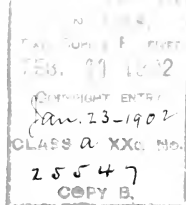 FEB. 1902
COPYRIGHT ENTRY
Jan. 23-1902
CLASS a XXc. No.
25547
COPY B.